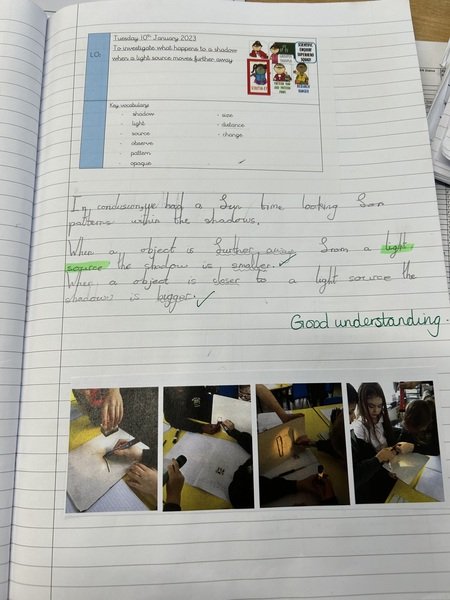 Tuesday 10th January 2023
LO:
To investigate what happens to a shadow
when a light source moves further away
SCIENTIFIC
ENQUIRY
SUPERHERO
TODAY!
Key vocabulary
- shadow
- light
- source
- observe
- pattern
- opaque
- size
- distance
- change
In conclusion, we had a fun time looking for
patterns within the shadows.
When a object is further away from a light
source the shadow is smaller.
When a object is closer to a light source the
shadows is bigger.
Good understanding.